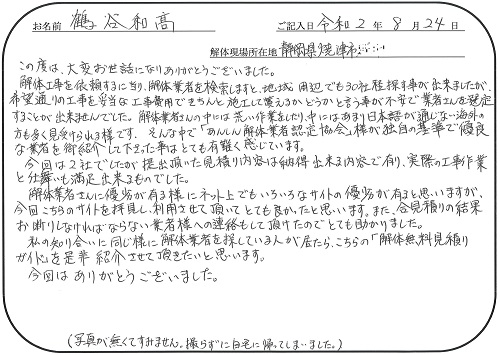 お名前 鶴谷和高 ご記入日 令和2年8月24日
解体現場所在地 静岡県焼津市
この度は、大変お世話になりありがとうございました。
解体工事を依頼するに当り、解体業者を検索しますと、地域周辺でも30社程探す事が出来ましたが、
希望通りの工事を妥当な工事費用できちんと施工して貰えるかどうかと言う事が不安で業者さんを選定
することが出来ませんでした。解体業者さんの中には荒い作業をしたり、中にはあまり日本語が通じない海外の
方も多く見受けられる様です。そんな中で「あんしん解体業者認定協会」様が独自の基準で優良
な業者を御紹介して下さった事はとても有難く感じています。
今回は2社でしたが提出頂いた見積り内容は納得出来る内容で有り、実際の工事作業
と仕舞いも満足出来るものでした。
解体業者さんに優劣が有る様にネット上でもいろいろなサイトの優劣が有ると思いますが、
今回こちらのサイトを拝見し、利用させて頂いてとても良かったと思います。また、合見積りの結果
お断りしなければならない業者様への連絡もして頂けたのでとても助かりました。
私の知り合いに同じ様に解体業者を探している人が居たら、こちらの「解体無料見積り
ガイド」を是非紹介させて頂きたいと思います。
今回はありがとうございました。
(写真が無くてすみません。撮らずに自宅に帰ってしまいました。)